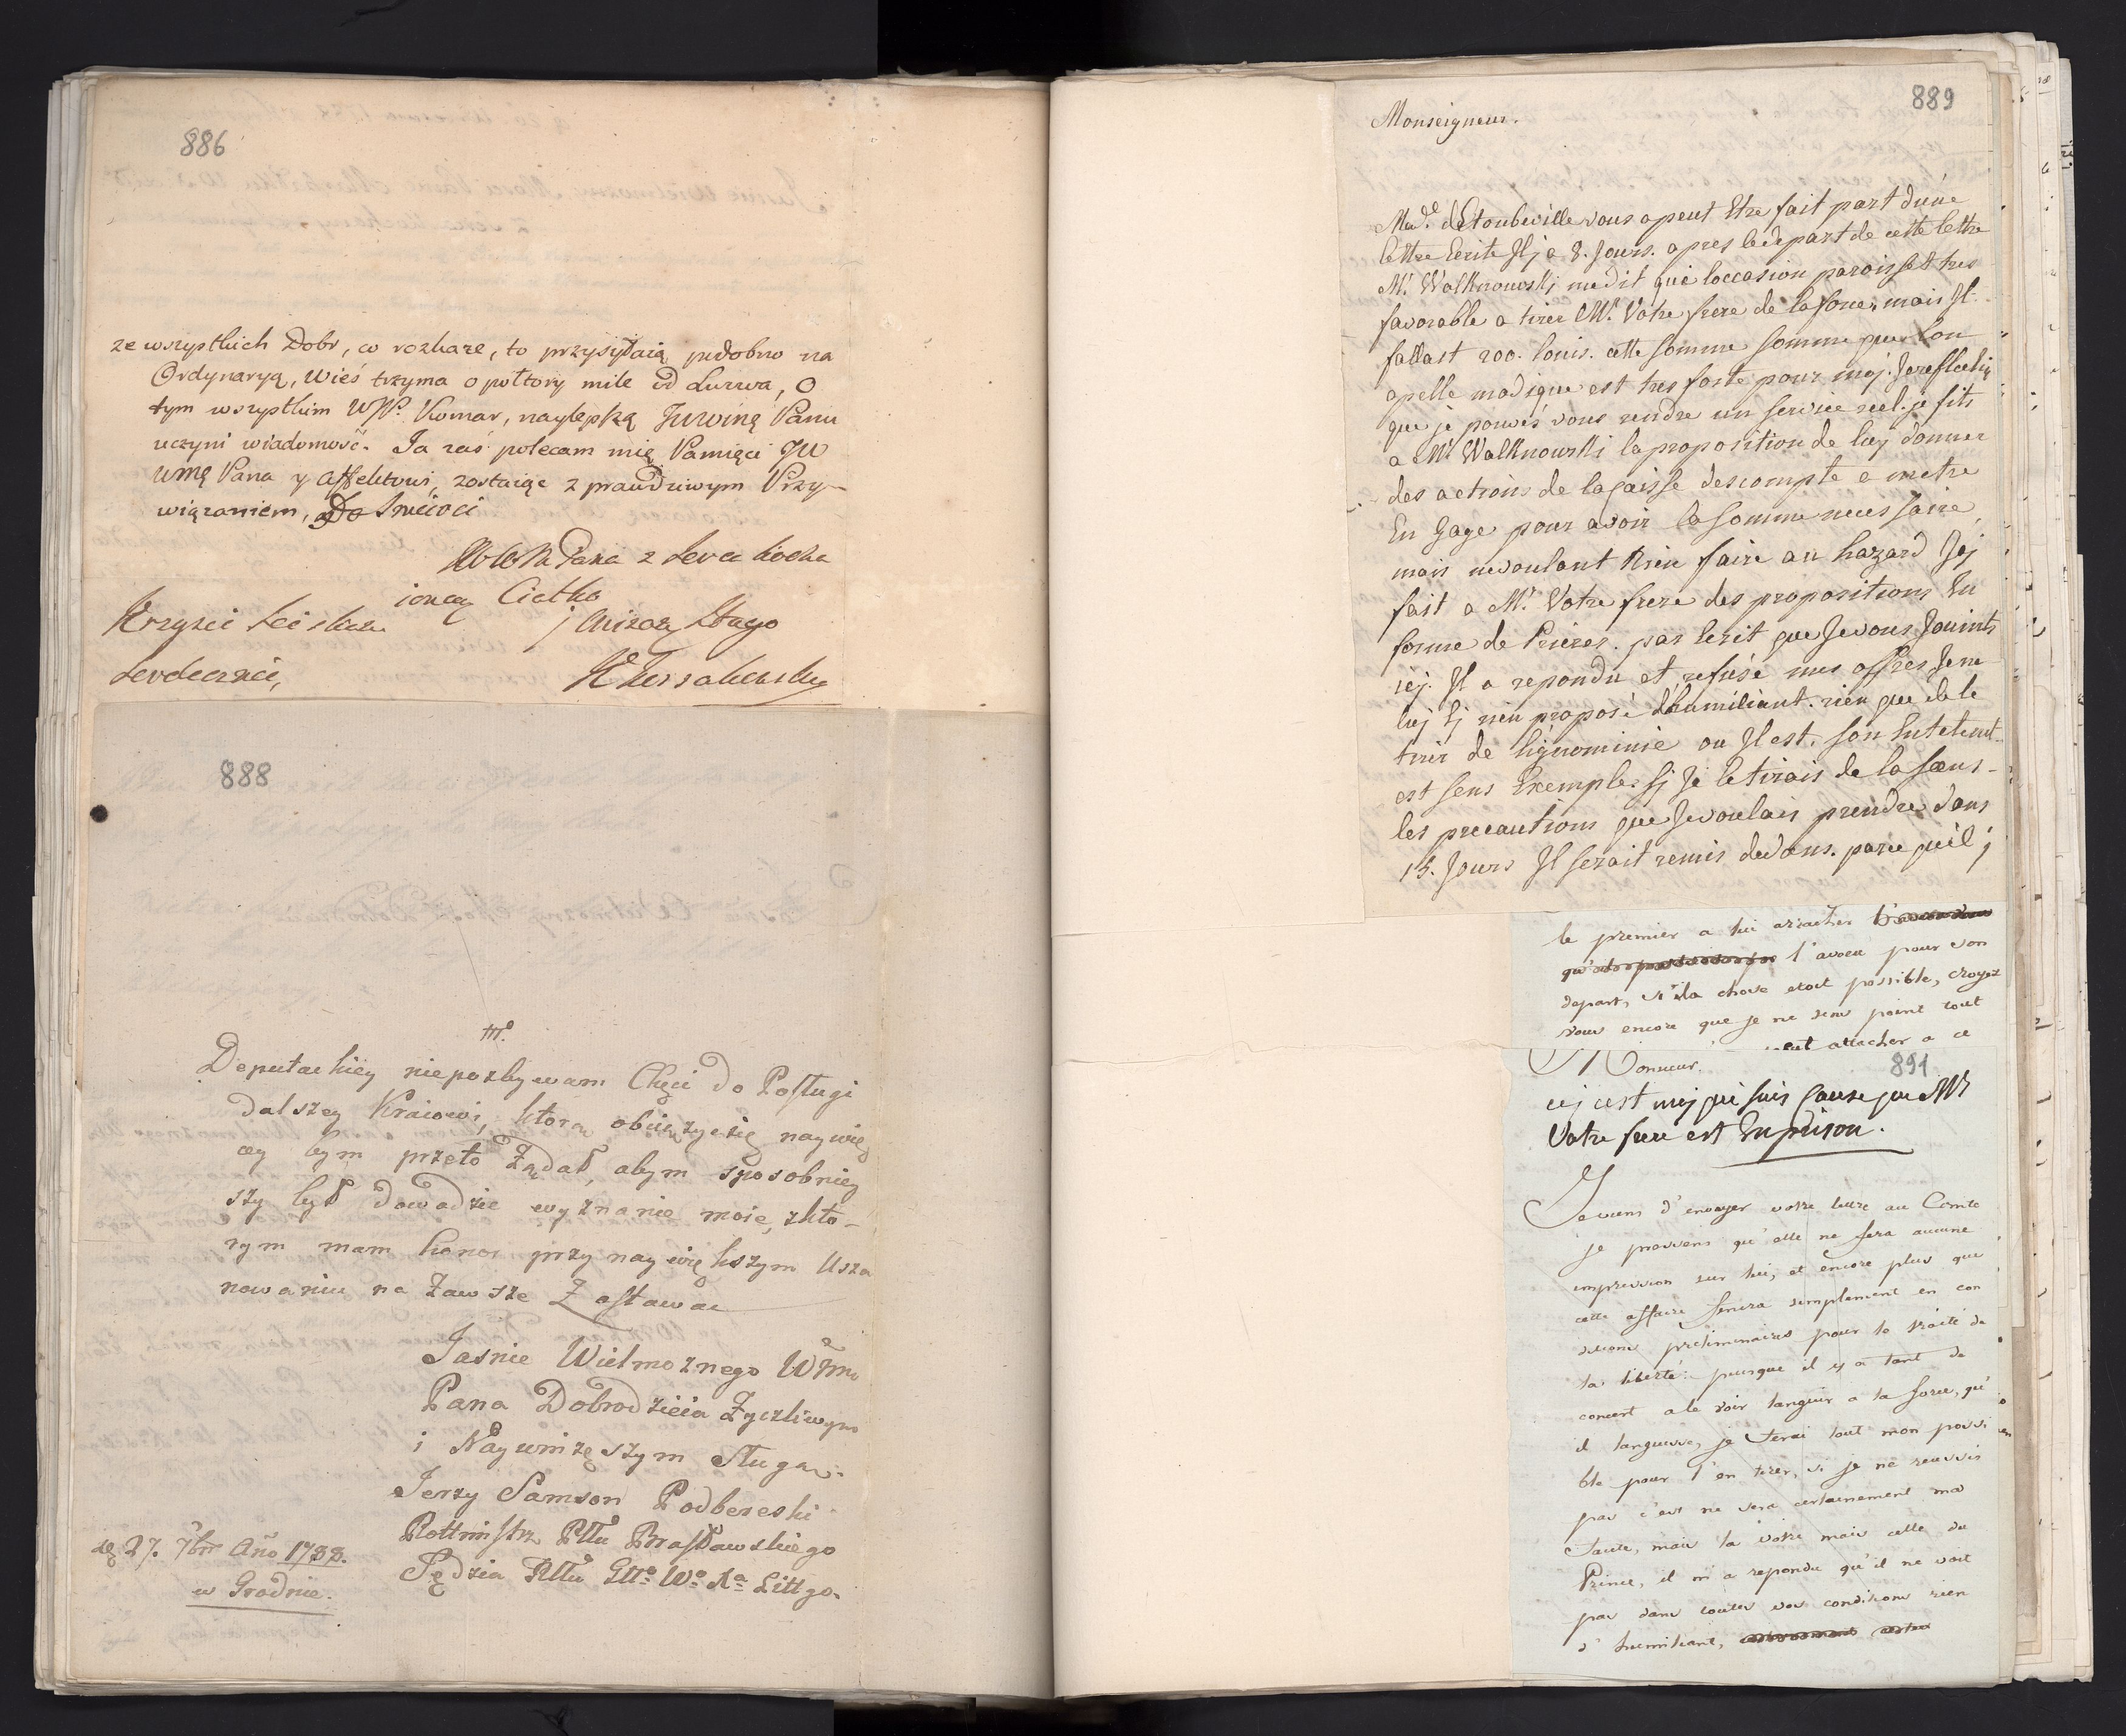 886
ze wszystkich Dobr, co rozkaże, to przysyłaią podobno na
Ordynaryą, Wieś trzyma o połtory mile od Lurwa, O
tym wszystkim WJP. Komar, naylepszą JWWinę Panu
uczyni wiadomość. Ja zaś polecam mię Pamięci JW
WMę Pana y Affektowi, zostaiąc z prawdziwym Przy-
wiązaniem, Do Śmierci
Pana z Serca kocha
iąncą Ciotką
i niżozą Sługą
Krzysi
Serdecznie,
888
Deputackiey niepozbywam Chęci do Posługi
dalszey Kraiowi, ktorą obiużyć się naywię
cey bym przeto Żądał, abym sposobniey
szy był dowodzie wyznanie moie, zkto-
rym mam honor przy naywiększym Usza
nowaniu na Zawsze Zostawać
Jasnie Wielmoznego WMo
Pana Dobrodzieia Życzliwym
i Naywnizszym Sługą.
Jerzy Samson Podbereski
Rottmistrz Pttu Brasławskiego
Sędzia Pttu Gtto Wo Xa Littgo.
de 27. 7bra Año 1788.
w Grodnie.
889
Monseigneur.
Mad.e dEtoubeville vous a peut Etre fait part dune
lettre Ecrite Il j a 8. Jours. apres le depart de cette lettre
Mr. Walknowski me dit que loccasion paroisset tres
favorable a tirer Mr. Votre frere de la force, mais Il
fallast 200. louis. cette somme somme que lon
apelle modique est tres forte pour moj. Je reflechis
que je pouves vous rendre un service reel. je fits
a Mr Walknowski la proposition de luy donner
des actions de la caisse descompte a metre
En Gage pour avoir la somme necessaire
mais ne voulant Rien faire au hazard Jej
fait a Mr. Votre frere des propositions En
forme de Prieres. par Ecrit que Je vous Jouints
icj. Il a repondu et refusé mes offres Je ne
luj ej rien proposé dhumiliant. rien que de le
tirer de lignominie ou Il est. son Entetement
est sens Exemple. Sj Je le tirais de la sens
les precautions que Je voulais prendre dans
15. Jours Il serait remis dedans. parce quil j
le premier a lui arracher
qu' l'aveu pour son
depart, si la chose etoit possible, croyez
vous encore que je ne sois point tout
attacher a ce
891
Monsieur.
cej cest moj qui suis Cause que Mr
Votre frere est En prison.
Je viens d'envoyer votre lettre au Comte
je previens qu'elle ne fera aucune
impression sur lui, et encore plus que
cette affaire finira simplement en con
ditions preliminaires pour le traité de
la liberté: puisque il y a tant de
concert a le voir languir a la force, qu'
il languisse, je ferai tout mon possi
ble pour l'en tirer, si je ne reussis
pas c'est ne sera certainement ma
faute, mais la votre mais celle du
Prince, il m'a repondu qu'il ne voit
pas dans toutes vos conditions rien
d'humiliant,